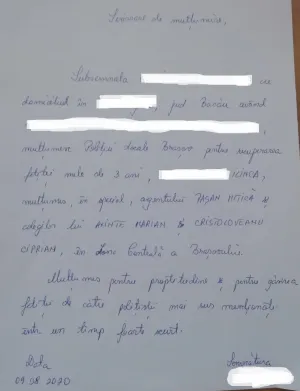 Scrisoare de mulțumire,
Subsemnata cu
domiciliul în jud Brașov adresez
mulțumire Poliției Locale Brașov pentru recuperarea
fetiței mele de 3 ani, ILINCA,
mulțumesc, în special, agentului BAȘAN MITICĂ și
colegilor lui AXINTE MARIAN și CRISTOLOVEANU
CIPRIAN, în Zona Centrală a Brașovului.
Mulțumesc pentru promptitudine și pentru găsirea
fetiței de către polițiștii mai sus menționați
într un timp foarte scurt.
Data Semnătura
09.08 2020